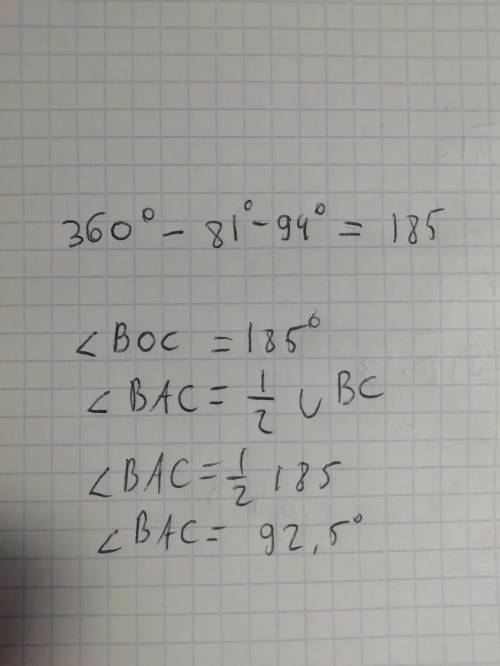 360° - 81° - 94° = 185
∠BOC = 185°
∠BAC = 1/2 ∪BC
∠BAC = 1/2 185
∠BAC = 92,5°